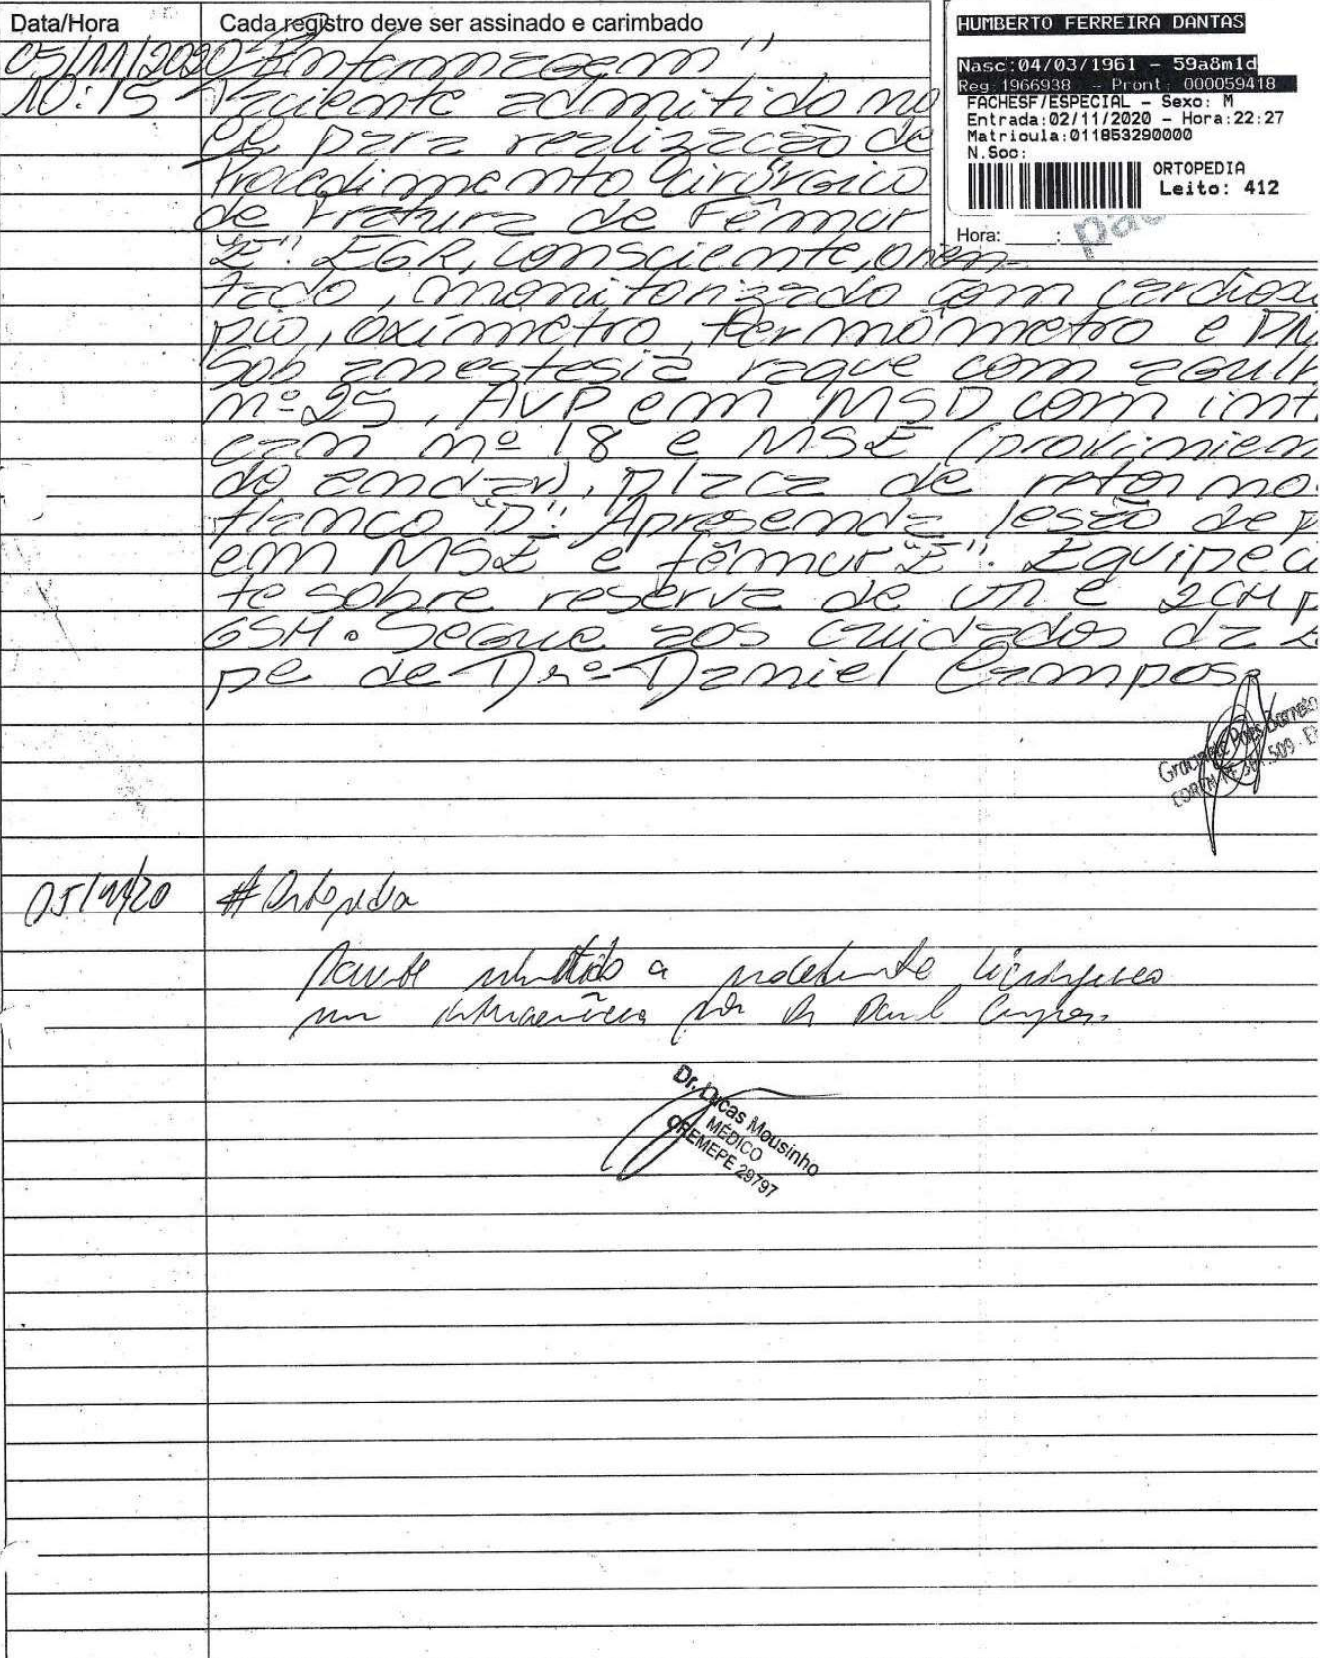 Data/Hora Cada registro deve ser assinado e carimbado
HUMBERTO FERREIRA DANTAS
Nasc:04/03/1961 - 59a8m1d
Reg 1966938 - Pront: 000059418
FACHESF/ESPECIAL - Sexo: M
Entrada:02/11/2020 - Hora:22:27
Matricula:011853290000
N.Soc:
ORTOPEDIA
Leito: 412
Hora: ____:
05/11/2020 "Enfermagem"
10:15 Paciente admitido no
CC para realização de
Procedimento Cirúrgico
de Fratura de Fêmur
"E". EGR, consciente, orien-
tado, monitorizado com cardiosc
pio, oxímetro, termômetro e PN
Sob anestesia raque com agulh
nº 25, AVP em MSD com int
cam nº 18 e MSE (provimien
do andar), placa de retorno
flanco "D". Apresenda lesão de p
em MSE e fêmur "E". Equipe c
te sobre reserva de UTI e 2CH p
GSH. Segue aos cuidados da E
pe de Drº Daniel Campos.
05/11/20 # Ortopedia
Paciente submetido a procedimento cirúrgico
sem intercorrências por Dr Daniel Campos
Dr. Lucas Mousinho
MÉDICO
CREMEPE 29797